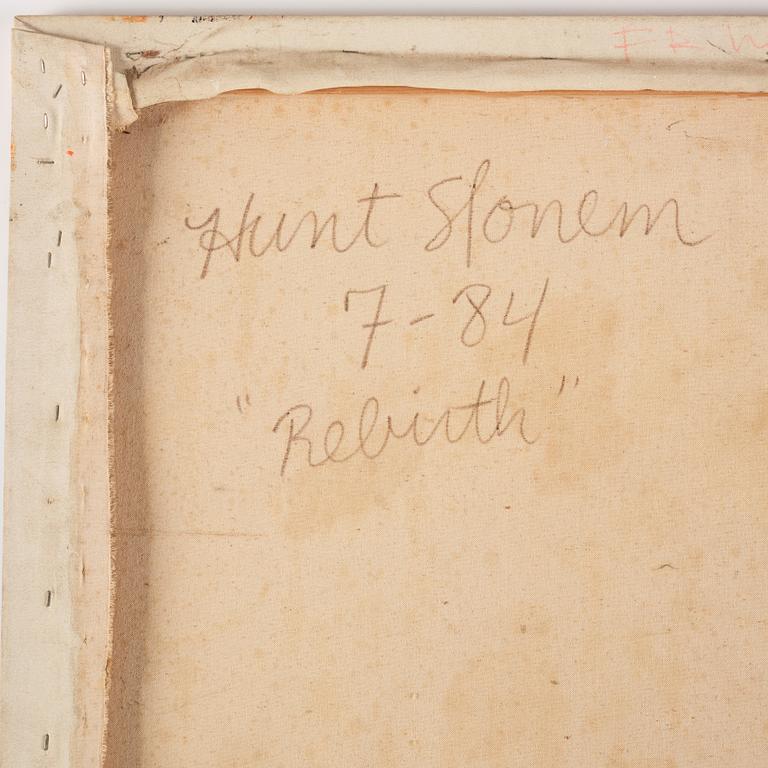 Hunt Slonem
7-84
"Rebirth"